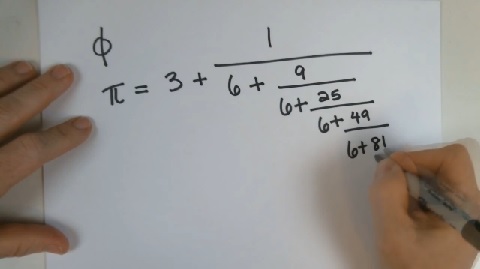 ϕ
π = 3 + 1
6 + 9
6 + 25
6 + 49
6 + 81